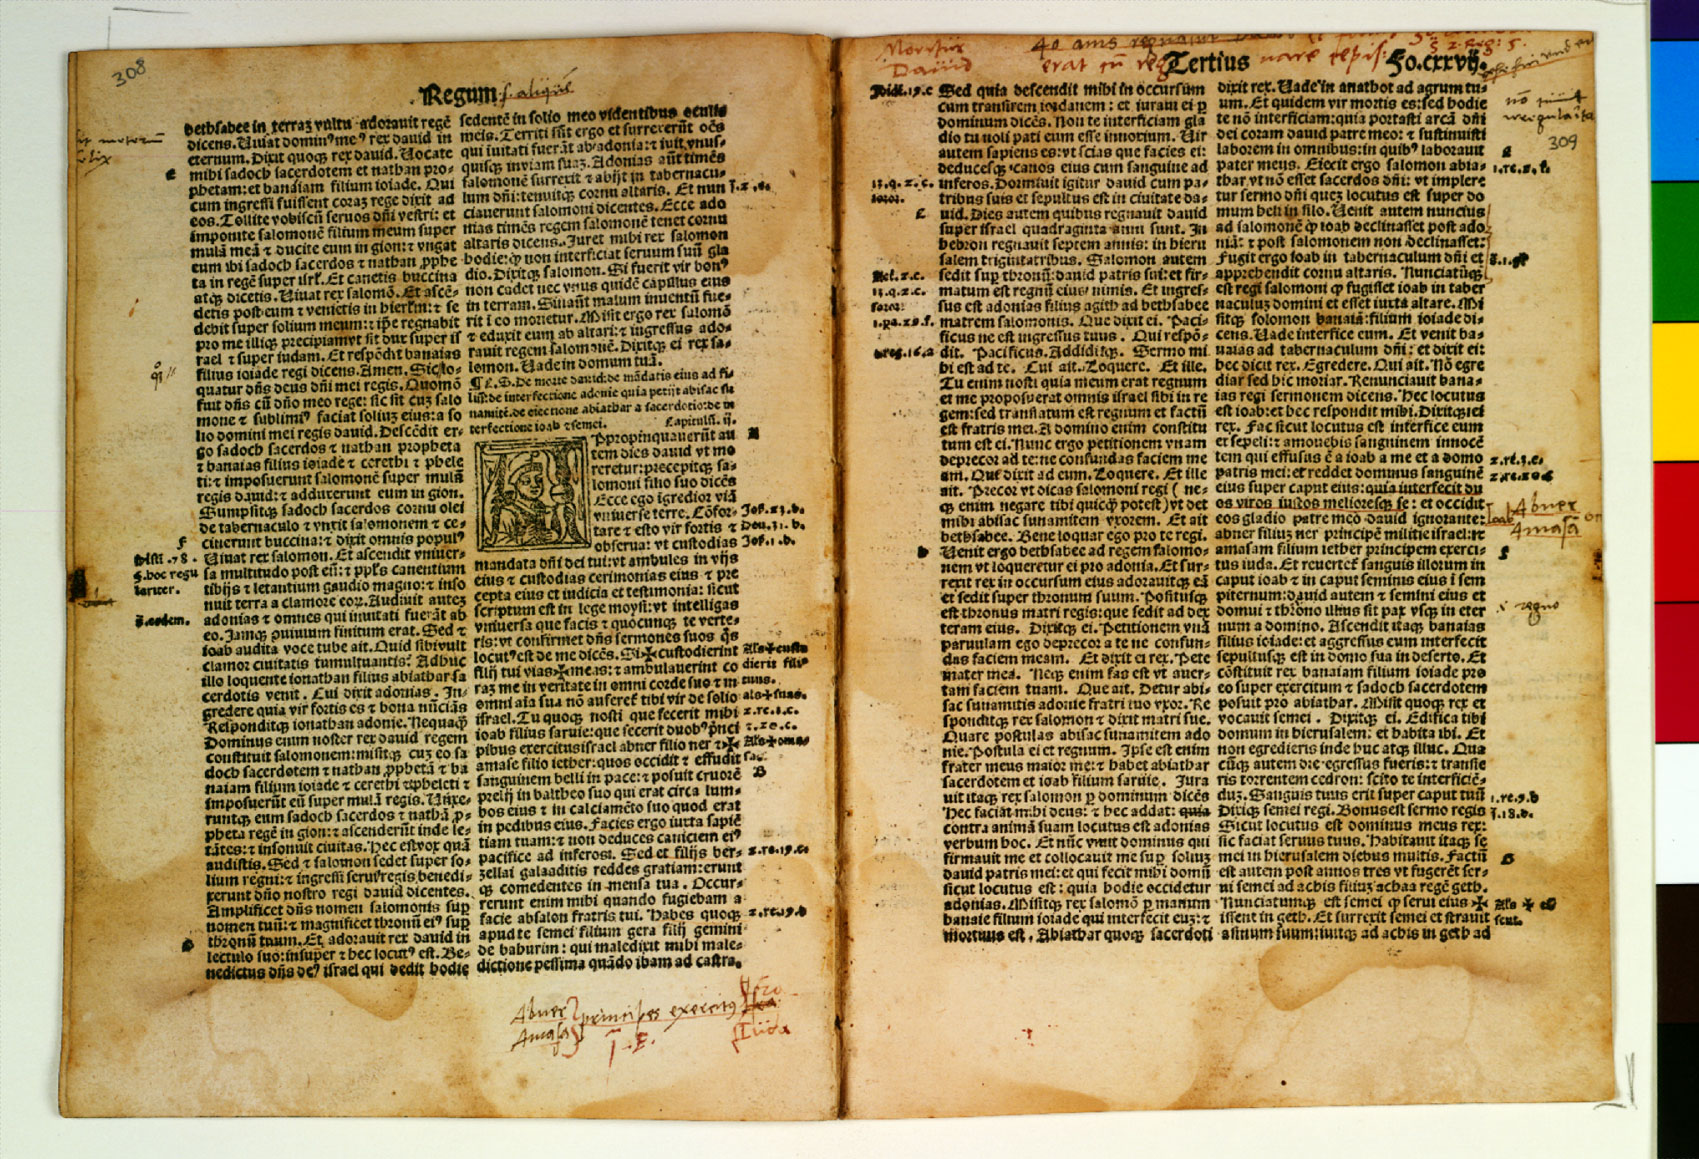 308
Regum
bethsabee in terraz vultu adorauit regē
dicens. Viuat dominꝰ meꝰ rex dauid in
eternum. Dixit quoqꝫ rex dauid. Vocate
mihi sadoch sacerdotem et nathan pro-
phetam: et banaiam filium ioiade. Qui
cum ingressi fuissent coraz rege dixit ad
eos. Tollite vobiscū seruos dn̄i vestri: et
imponite salomonē filium meum super
mulā meā ⁊ ducite eum in gion: ⁊ vngat
eum ibi sadoch sacerdos ⁊ nathan ꝓphe
ta in regē super isrl̄. Et canetis buccina
atqꝫ dicetis. Viuat rex salomō. Et ascē-
detis post eum ⁊ venietis in hierlm̄: ⁊ se
debit super solium meum: ⁊ ip̄e regnabit
pro me illiqꝫ precipiam vt sit dux super is
rael ⁊ super iudam. Et respōdit banaias
filius ioiade regi dicens. Amen. Sic lo-
quatur dn̄s deus dn̄i mei regis. Quomō
fuit dn̄s cū dn̄o meo rege: sic sit cuz salo
mone ⁊ sublimiꝰ faciat soliuz eius: a so
lio domini mei regis dauid. Descēdit er-
go sadoch sacerdos ⁊ nathan propheta
⁊ banaias filius ioiade ⁊ cerethi ⁊ phele
ti: ⁊ imposuerunt salomonē super mulā
regis dauid: ⁊ adduxerunt eum in gion.
Sumpsitqꝫ sadoch sacerdos cornu olei
de tabernaculo ⁊ vnxit salomonem ⁊ ce-
cinerunt buccina: ⁊ dixit omnis populꝰ
Viuat rex salomon. Et ascendit vniuer-
sa multitudo post eū: ⁊ ppl̄s canentium
tibijs ⁊ letantium gaudio magno: ⁊ inso
nuit terra a clamore eoꝝ. Audiuit autez
adonias ⁊ omnes qui inuitati fuerāt ab
eo. Iamqꝫ ꝯuiuium finitum erat. Sed ⁊
ioab audita voce tube ait. Quid sibi vult
clamor ciuitatis tumultuantis? Adhuc
illo loquente ionathan filius abiathar sa
cerdotis venit. Cui dixit adonias. In-
gredere quia vir fortis es ⁊ bona nūcias
Responditqꝫ ionathan adonie. Nequaqꝫ
Dominus enim noster rex dauid regem
constituit salomonem: misitqꝫ cuz eo sa
doch sacerdotem ⁊ nathan ꝓphetā ⁊ ba
naiam filium ioiade ⁊ cerethi ⁊ pheleti ⁊
imposuerūt eū super mulā regis. Vnxe-
runtqꝫ eum sadoch sacerdos ⁊ nathā ꝓ-
pheta regē in gion: ⁊ ascenderūt inde le-
tātes: ⁊ insonuit ciuitas. Hec est vox quā
audistis. Sed ⁊ salomon sedet super so-
lium regni: ⁊ ingressi serui regis benedi-
xerunt dn̄o nostro regi dauid dicentes.
Amplificet dn̄s nomen salomonis sup̄
nomen tuū: ⁊ magnificet thronū eiꝰ sup̄
thronū tuum. Et adorauit rex dauid in
lectulo suo: insuper ⁊ hec locutꝰ est. Be-
nedictus dn̄s deꝰ israel qui dedit hodie
e
f
Disti .78.
§. hoc regu
lariter.
§. eodem.
G
sedentē in solio meo videntibus oculis
meis. Territi sūt ergo et surrexerūt oēs
qui iuitati fuerāt ab adonia: ⁊ iuit vnus-
quisqꝫ in viam suaz. Adonias aūt timēs
salomonē surrexit ⁊ abijt in tabernacu-
lum dn̄i: tenuitqꝫ cornu altaris. Et nun
ciauerunt salomoni dicentes. Ecce ado
nias timēs regem salomonē tenet cornu
altaris dicens. Iuret mihi rex salomon
hodie: ꝙ non interficiat seruum suū gla
dio. Dixitqꝫ salomon. Si fuerit vir bonꝰ
non cadet nec vnus quidē capillus eius
in terram. Si aūt malum inuentū fue-
rit ī eo morietur. Misit ergo rex salomō
⁊ eduxit eum ab altari: ⁊ ingressus ado-
rauit regem salomonē. Dixitqꝫ ei rex sa-
lomon. Vade in domum tuā.
De morte dauid: de mādatis eius ad fi-
liū: de interfectione adonie quia petijt abisac su
namitē: de eiectione abiathar a sacerdotio: de in
terfectione ioab ⁊ semei. Capitulū. ij.
Appropinquauerūt au
tem dies dauid vt mo
reretur: precepitqꝫ sa-
lomoni filio suo dicēs
Ecce ego igredior viā
vniuerse terre. Cōfor-
tare ⁊ esto vir fortis ⁊
obserua: vt custodias
mandata dn̄i dei tui: vt ambules in vijs
eius ⁊ custodias cerimonias eius ⁊ pre
cepta eius et iudicia et testimonia: sicut
scriptum est in lege moysi: vt intelligas
vniuersa que facis ⁊ quocunqꝫ te verte-
ris: vt confirmet dn̄s sermones suos qs̄
locutꝰ est de me dicēs. Si ✠ custodierint
filij tui vias ✠ meas: ⁊ ambulauerint co
raz me in veritate in omni corde suo ⁊ in
omni aīa sua nō auferet̄ tibi vir de solio
israel. Tu quoqꝫ nosti que fecerit mihi
ioab filius saruie: que fecerit duobꝰ pn̄ci
pibus exercitus israel abner filio ner ⁊ ✠
amase filio iether: quos occidit ⁊ effudit
sanguinem belli in pace: ⁊ posuit cruorē
prelij in baltheo suo qui erat circa lum-
bos eius ⁊ in calciamēto suo quod erat
in pedibus eius. Facies ergo iuxta sapiē
tiam tuam: ⁊ non deduces caniciem eiꝰ
pacifice ad inferos. Sed et filijs ber-
zellai galaaditis reddes gratiam: erunt
qꝫ comedentes in mensa tua. Occur-
rerunt enim mihi quando fugiebam a
facie absalon fratris tui. Habes quoqꝫ
apud te semei filium gera filij gemini
de bahurim: qui maledixit mihi male-
dictione pessima quādo ibam ad castra.
A
Ios. 23. b.
Deu. 31. b.
Ios. 1. b.
Als ✠ custo
dierit filiꝰ
tuus.
als ✠ suas.
2. re. 3. c.
⁊. 20. c.
B
2. re. 19. c.
2. re. 19. b
Abner
Amasa
principes exercitus
Iuda
Tertius
Fo. cxxvij.
309
Sed quia descendit mihi in occursum
cum transirem iordanem: et iuraui ei ꝑ
dominum dicēs. Non te interficiam gla
dio tu noli pati eum esse innoxium. Vir
autem sapiens es: vt scias que facies ei:
deducesqꝫ canos eius cum sanguine ad
inferos. Dormiuit igitur dauid cum pa-
tribus suis et sepultus est in ciuitate da-
uid. Dies autem quibus regnauit dauid
super israel quadraginta anni sunt. In
hebron regnauit septem annis: in hieru
salem triginta tribus. Salomon autem
sedit sup̄ thronū: dauid patris sui: et fir-
matum est regnū eius nimis. Et ingres-
sus est adonias filius agith ad bethsabee
matrem salomonis. Que dixit ei. Paci-
ficus ne est ingressus tuus. Qui respō-
dit. Pacificus. Addiditqꝫ. Sermo mi
hi est ad te. Cui ait. Loquere. Et ille.
Tu enim nosti quia meum erat regnum
et me proposuerat omnis israel sibi in re
gem: sed translatum est regnum et factū
est fratris mei. A domino enim constitu
tum est ei. Nunc ergo petitionem vnam
deprecor ad te: ne confundas faciem me
am. Que dixit ad eum. Loquere. Et ille
ait. Precor vt dicas salomoni regi (ne-
qꝫ enim negare tibi quicqꝫ potest) vt det
mihi abisac sunamitem vxorem. Et ait
bethsabee. Bene loquar ego pro te regi.
Venit ergo bethsabee ad regem salomo-
nem vt loqueretur ei pro adonia. Et sur-
rexit rex in occursum eius adorauitqꝫ eā
et sedit super thronum suum. Positusqꝫ
est thronus matri regis: que sedit ad dex
teram eius. Dixitqꝫ ei. Petitionem vnā
paruulam ego deprecor a te ne confun-
das faciem meam. Et dixit ei rex. Pete
mater mea. Neqꝫ enim fas est vt auer-
tam faciem tuam. Que ait. Detur abi-
sac sunamitis adonie fratri tuo vxor. Re
sponditqꝫ rex salomon ⁊ dixit matri sue.
Quare postulas abisac sunamitem ado
nie. Postula ei et regnum. Ipse est enim
frater meus maior me: ⁊ habet abiathar
sacerdotem et ioab filium saruie. Iura
uit itaqꝫ rex salomon ꝑ dominum dicēs
Hec faciat mihi deus: ⁊ hec addat: quia
contra animā suam locutus est adonias
verbum hoc. Et nūc viuit dominus qui
firmauit me et collocauit me sup̄ soliuz
dauid patris mei: et qui fecit mihi domū
sicut locutus est: quia hodie occidetur
adonias. Misitqꝫ rex salomō ꝑ manum
banaie filium ioiade qui interfecit euz: ⁊
mortuus est. Abiathar quoqꝫ sacerdoti
C
D
dixit rex. Vade in anathot ad agrum tu-
um. Et quidem vir mortis es: sed hodie
te nō interficiam: quia portasti arcā dn̄i
dei coram dauid patre meo: ⁊ sustinuisti
laborem in omnibus: in quibꝰ laborauit
pater meus. Eiecit ergo salomon abia-
thar vt nō esset sacerdos dn̄i: vt implere
tur sermo dn̄i quez locutus est super do
mum heli in silo. Venit autem nuncius
ad salomonē ꝙ ioab declinasset post ado
niā: ⁊ post salomonem non declinasset:
Fugit ergo ioab in tabernaculum dn̄i et
apprehendit cornu altaris. Nunciatūqꝫ
est regi salomoni ꝙ fugisset ioab in taber
naculuz domini et esset iuxta altare. Mi
sitqꝫ solomon banaiā: filium ioiade di-
cens. Vade interfice eum. Et venit ba-
naias ad tabernaculum dn̄i: et dixit ei:
hec dicit rex. Egredere. Qui ait. Nō egre
diar sed hic moriar. Renunciauit bana-
ias regi sermonem dicens. Hec locutus
est ioab: et hec respondit mihi. Dixitqꝫ ei
rex. Fac sicut locutus est interfice eum
et sepeli: ⁊ amouebis sanguinem innocē
tem qui effusus ē a ioab a me et a domo
patris mei: et reddet dominus sanguinē
eius super caput eius: quia interfecit du
os viros iustos melioresqꝫ se: et occidit
eos gladio patre meo dauid ignorante:
abner filiuz ner principē militie israel: ⁊
amasam filium iether principem exerci-
tus iuda. Et reuertet̄ sanguis illorum in
caput ioab ⁊ in caput seminis eius ī sem
piternum: dauid autem ⁊ semini eius et
domui ⁊ throno illius sit pax vsqꝫ in eter
num a domino. Ascendit itaqꝫ banaias
filius ioiade: et aggressus eum interfecit
sepultusqꝫ est in domo sua in deserto. Et
cōstituit rex banaiam filium ioiade pro
eo super exercitum ⁊ sadoch sacerdotem
posuit pro abiathar. Misit quoqꝫ rex et
vocauit semei. Dixitqꝫ ei. Edifica tibi
domum in hierusalem: et habita ibi. Et
non egredieris inde huc atqꝫ illuc. Qua
cūqꝫ autem die egressus fueris: ⁊ transie
ris torrentem cedron: scito te interficiē-
duz. Sanguis tuus erit super caput tuū
Dixitqꝫ semei regi. Bonus est sermo regis
Sicut locutus est dominus meus rex:
sic faciat seruus tuus. Habitauit itaqꝫ se
mei in hierusalem diebus multis. Factū
est autem post annos tres vt fugerēt ser-
ui semei ad achis filiuz achaa regē geth.
Nunciatumqꝫ est semei ꝙ serui eius ✠
issent in geth. Et surrexit semei et strauit
asinum suum: iuitqꝫ ad achis in geth ad
E
F
Abner
Amasa
regno
G